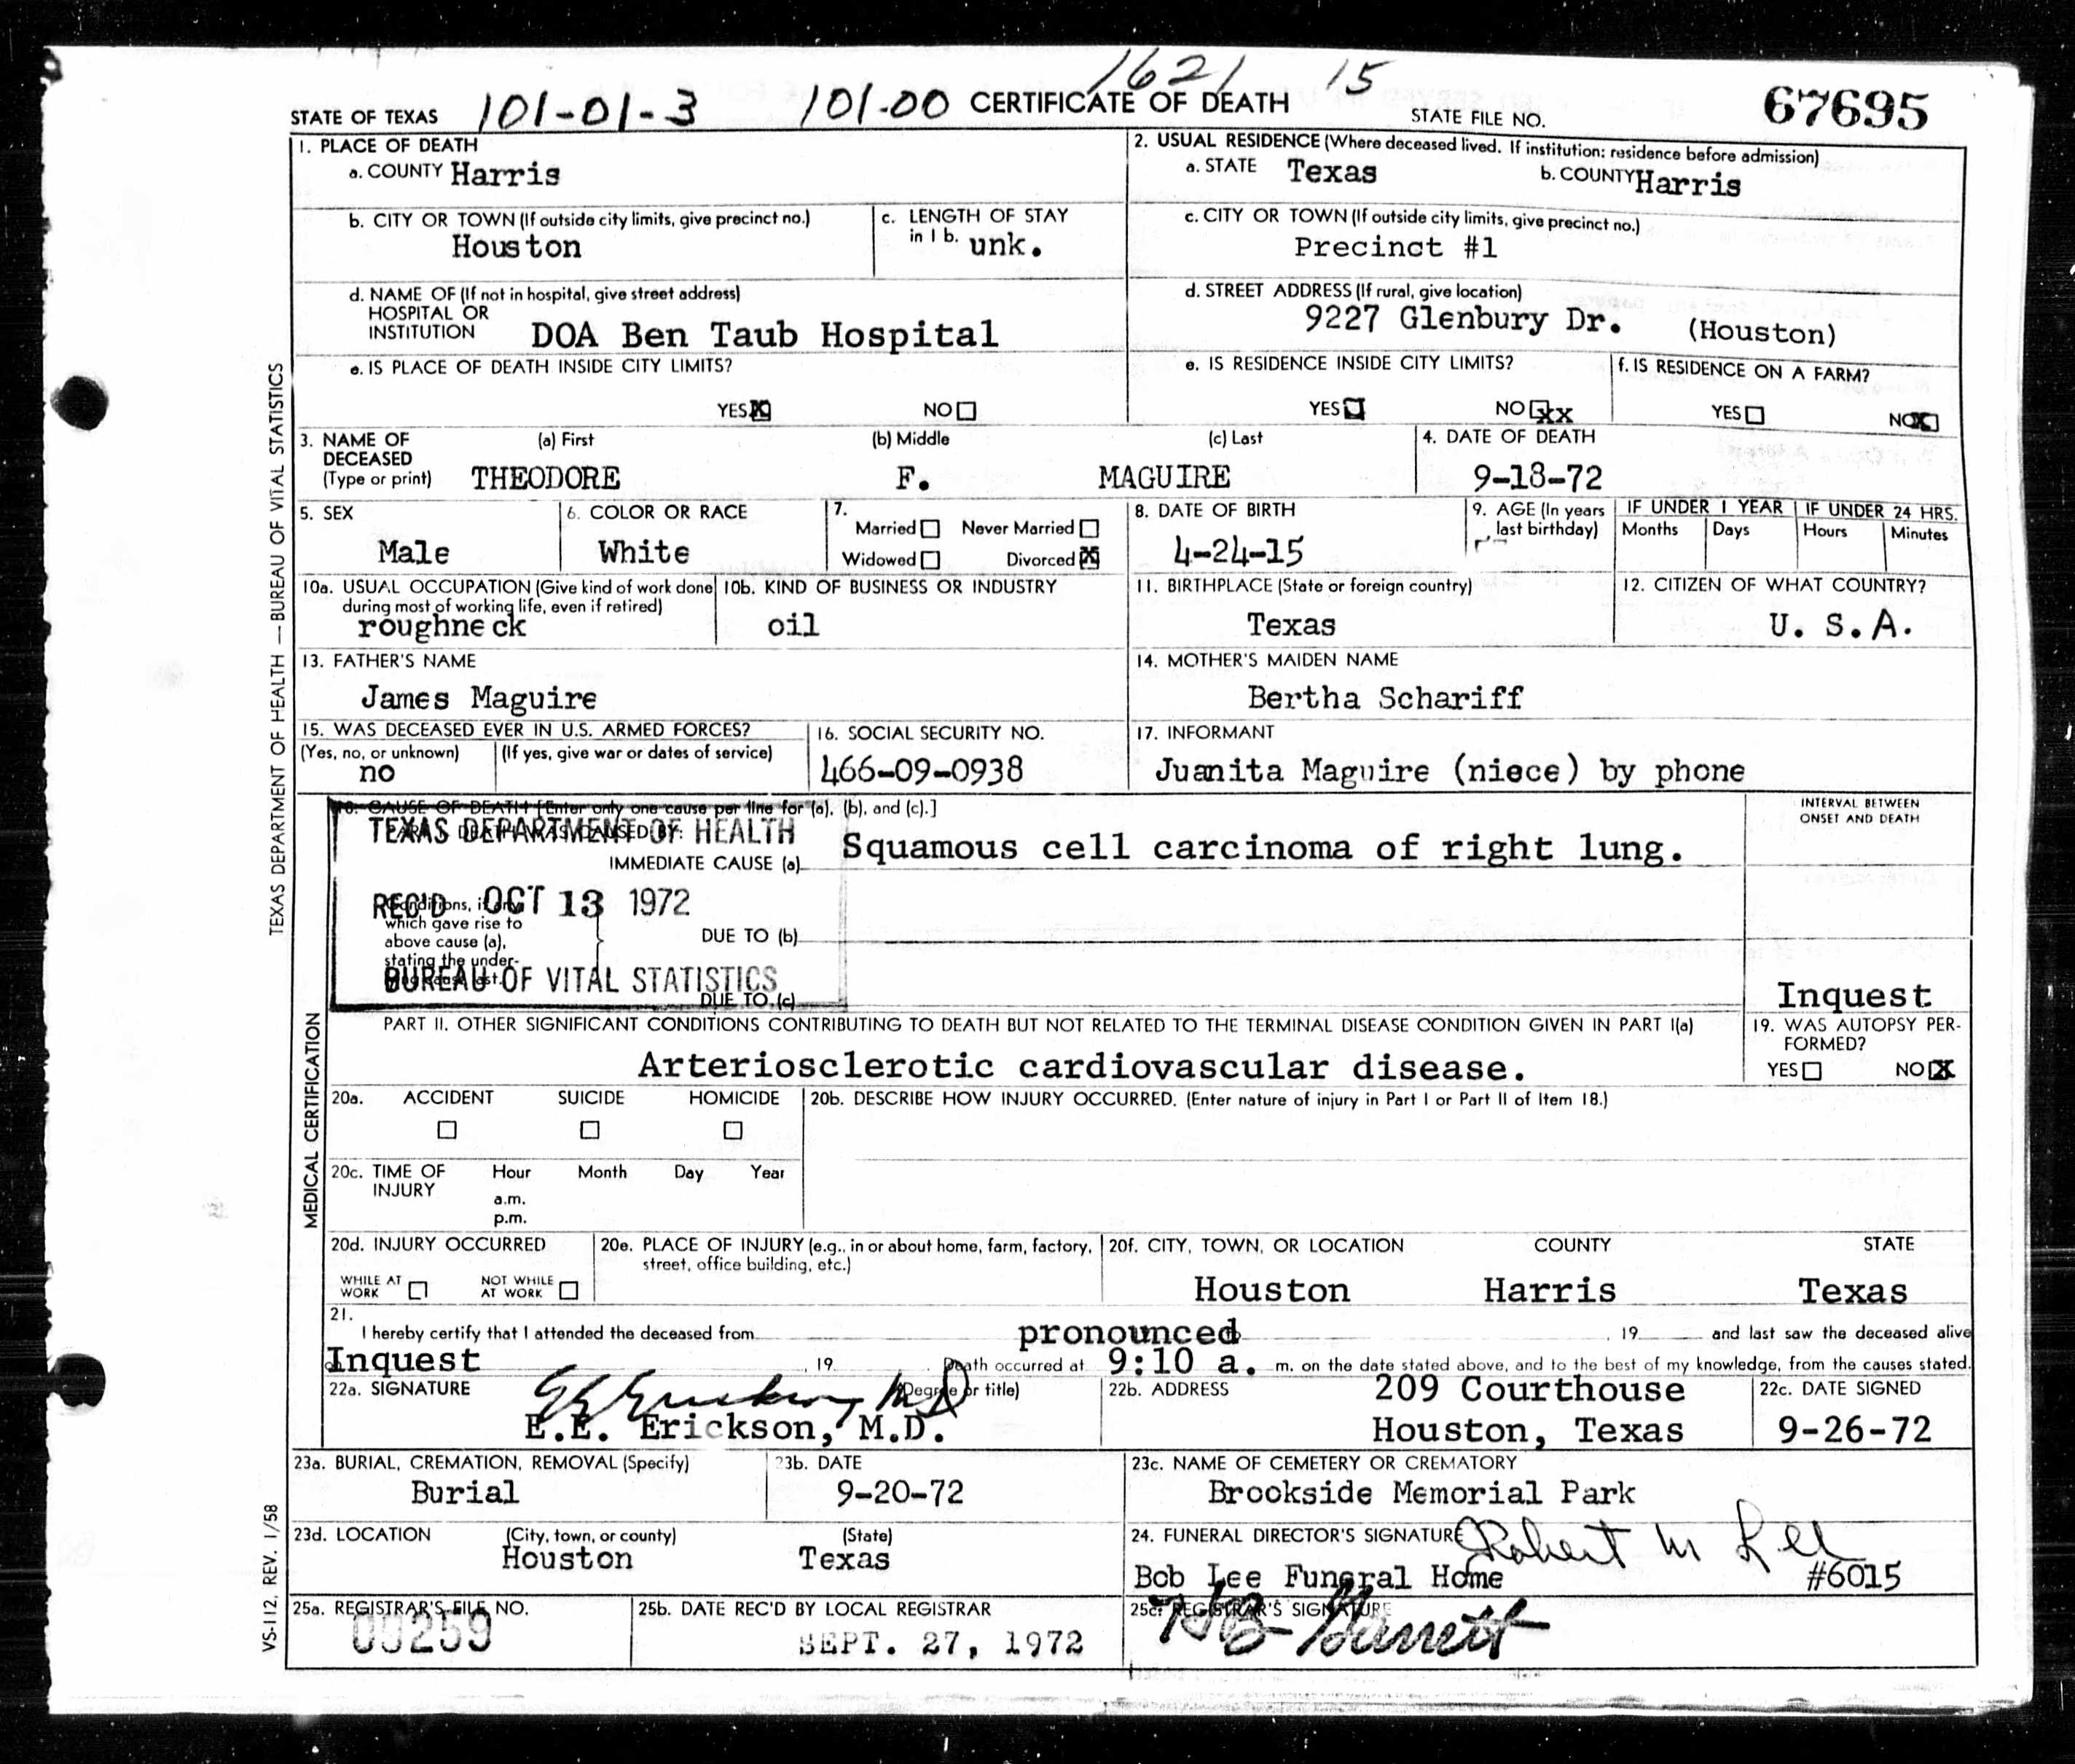 1621 15
STATE OF TEXAS 101-01-3 101-00 CERTIFICATE OF DEATH STATE FILE NO. 67695
1. PLACE OF DEATH
a. COUNTY Harris
2. USUAL RESIDENCE (Where deceased lived. If institution: residence before admission)
a. STATE Texas b. COUNTY Harris
b. CITY OR TOWN (If outside city limits, give precinct no.)
Houston
c. LENGTH OF STAY
in 1 b. unk.
c. CITY OR TOWN (If outside city limits, give precinct no.)
Precinct #1
d. NAME OF (If not in hospital, give street address)
HOSPITAL OR
INSTITUTION DOA Ben Taub Hospital
d. STREET ADDRESS (If rural, give location)
9227 Glenbury Dr. (Houston)
e. IS PLACE OF DEATH INSIDE CITY LIMITS?
YES X NO
e. IS RESIDENCE INSIDE CITY LIMITS?
YES NO xx
f. IS RESIDENCE ON A FARM?
YES NO X
3. NAME OF DECEASED (Type or print)
(a) First (b) Middle (c) Last
THEODORE F. MAGUIRE
4. DATE OF DEATH
9-18-72
5. SEX
Male
6. COLOR OR RACE
White
7.
Married Never Married
Widowed Divorced X
8. DATE OF BIRTH
4-24-15
9. AGE (In years
last birthday)
IF UNDER 1 YEAR
Months Days
IF UNDER 24 HRS.
Hours Minutes
10a. USUAL OCCUPATION (Give kind of work done
during most of working life, even if retired)
roughneck
10b. KIND OF BUSINESS OR INDUSTRY
oil
11. BIRTHPLACE (State or foreign country)
Texas
12. CITIZEN OF WHAT COUNTRY?
U. S. A.
13. FATHER'S NAME
James Maguire
14. MOTHER'S MAIDEN NAME
Bertha Schariff
15. WAS DECEASED EVER IN U.S. ARMED FORCES?
(Yes, no, or unknown) (If yes, give war or dates of service)
no
16. SOCIAL SECURITY NO.
466-09-0938
17. INFORMANT
Juanita Maguire (niece) by phone
18. CAUSE OF DEATH [Enter only one cause per line for (a), (b), and (c).]
INTERVAL BETWEEN
ONSET AND DEATH
TEXAS DEPARTMENT OF HEALTH
IMMEDIATE CAUSE (a) Squamous cell carcinoma of right lung.
REC'D OCT 13 1972
which gave rise to
above cause (a),
stating the under-
DUE TO (b)
BUREAU OF VITAL STATISTICS
DUE TO (c)
Inquest
PART II. OTHER SIGNIFICANT CONDITIONS CONTRIBUTING TO DEATH BUT NOT RELATED TO THE TERMINAL DISEASE CONDITION GIVEN IN PART I(a)
Arteriosclerotic cardiovascular disease.
19. WAS AUTOPSY PER-
FORMED?
YES NO X
20a. ACCIDENT SUICIDE HOMICIDE
20b. DESCRIBE HOW INJURY OCCURRED. (Enter nature of injury in Part I or Part II of Item 18.)
20c. TIME OF
INJURY
Hour Month Day Year
a.m.
p.m.
20d. INJURY OCCURRED
WHILE AT
WORK
NOT WHILE
AT WORK
20e. PLACE OF INJURY (e.g., in or about home, farm, factory,
street, office building, etc.)
20f. CITY, TOWN, OR LOCATION COUNTY STATE
Houston Harris Texas
21.
I hereby certify that I attended the deceased from pronounced , 19 and last saw the deceased alive
Inquest , 19 . Death occurred at 9:10 a. m. on the date stated above, and to the best of my knowledge, from the causes stated.
22a. SIGNATURE (Degree or title)
E E Erickson, M D
E.E. Erickson, M.D.
22b. ADDRESS
209 Courthouse
Houston, Texas
22c. DATE SIGNED
9-26-72
23a. BURIAL, CREMATION, REMOVAL (Specify)
Burial
23b. DATE
9-20-72
23c. NAME OF CEMETERY OR CREMATORY
Brookside Memorial Park
23d. LOCATION (City, town, or county) (State)
Houston Texas
24. FUNERAL DIRECTOR'S SIGNATURE Robert M Lee
Bob Lee Funeral Home #6015
25a. REGISTRAR'S FILE NO.
25b. DATE REC'D BY LOCAL REGISTRAR
SEPT. 27, 1972
25c. REGISTRAR'S SIGNATURE
TEXAS DEPARTMENT OF HEALTH — BUREAU OF VITAL STATISTICS
MEDICAL CERTIFICATION
VS-112, REV. 1/58